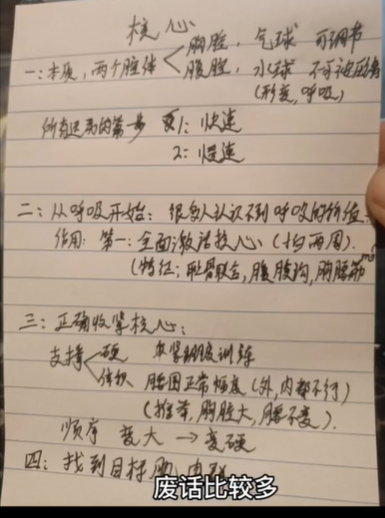 核心
胸腔，气球 可调节
一：本质，两个腔体
腹腔，水球 不可被压缩
(形变，呼吸)
所有运动的第一步 1：快速
2：慢速
二：从呼吸开始：很多人认识不到呼吸的价值
作用：第一：全面激活核心（前后两周）
（特征：耻骨联合，腹股沟，胸腰筋
三：正确收紧核心：
支撑 硬 收紧强度训练
体积 腰围正常幅度（外，内都不行）
（推荐，胸腔大，腰不变）
顺序 变大 → 变硬
四：找到目标肌
废话比较多